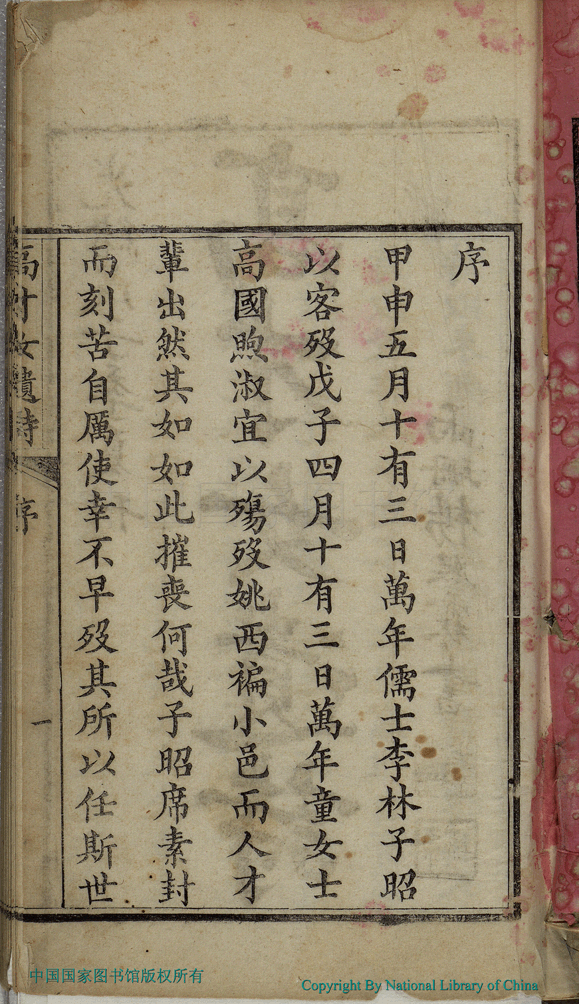 序
甲申五月十有三日萬年儒士李林子昭
以客歿戊子四月十有三日萬年童女士
高國煦淑宜以殤歿姚西褊小邑而人才
輩出然其如如此摧喪何哉子昭席素封
而刻苦自厲使幸不早歿其所以任斯世
高才女遺詩
序
一
中国国家图书馆版权所有
Copyright By National Library of China